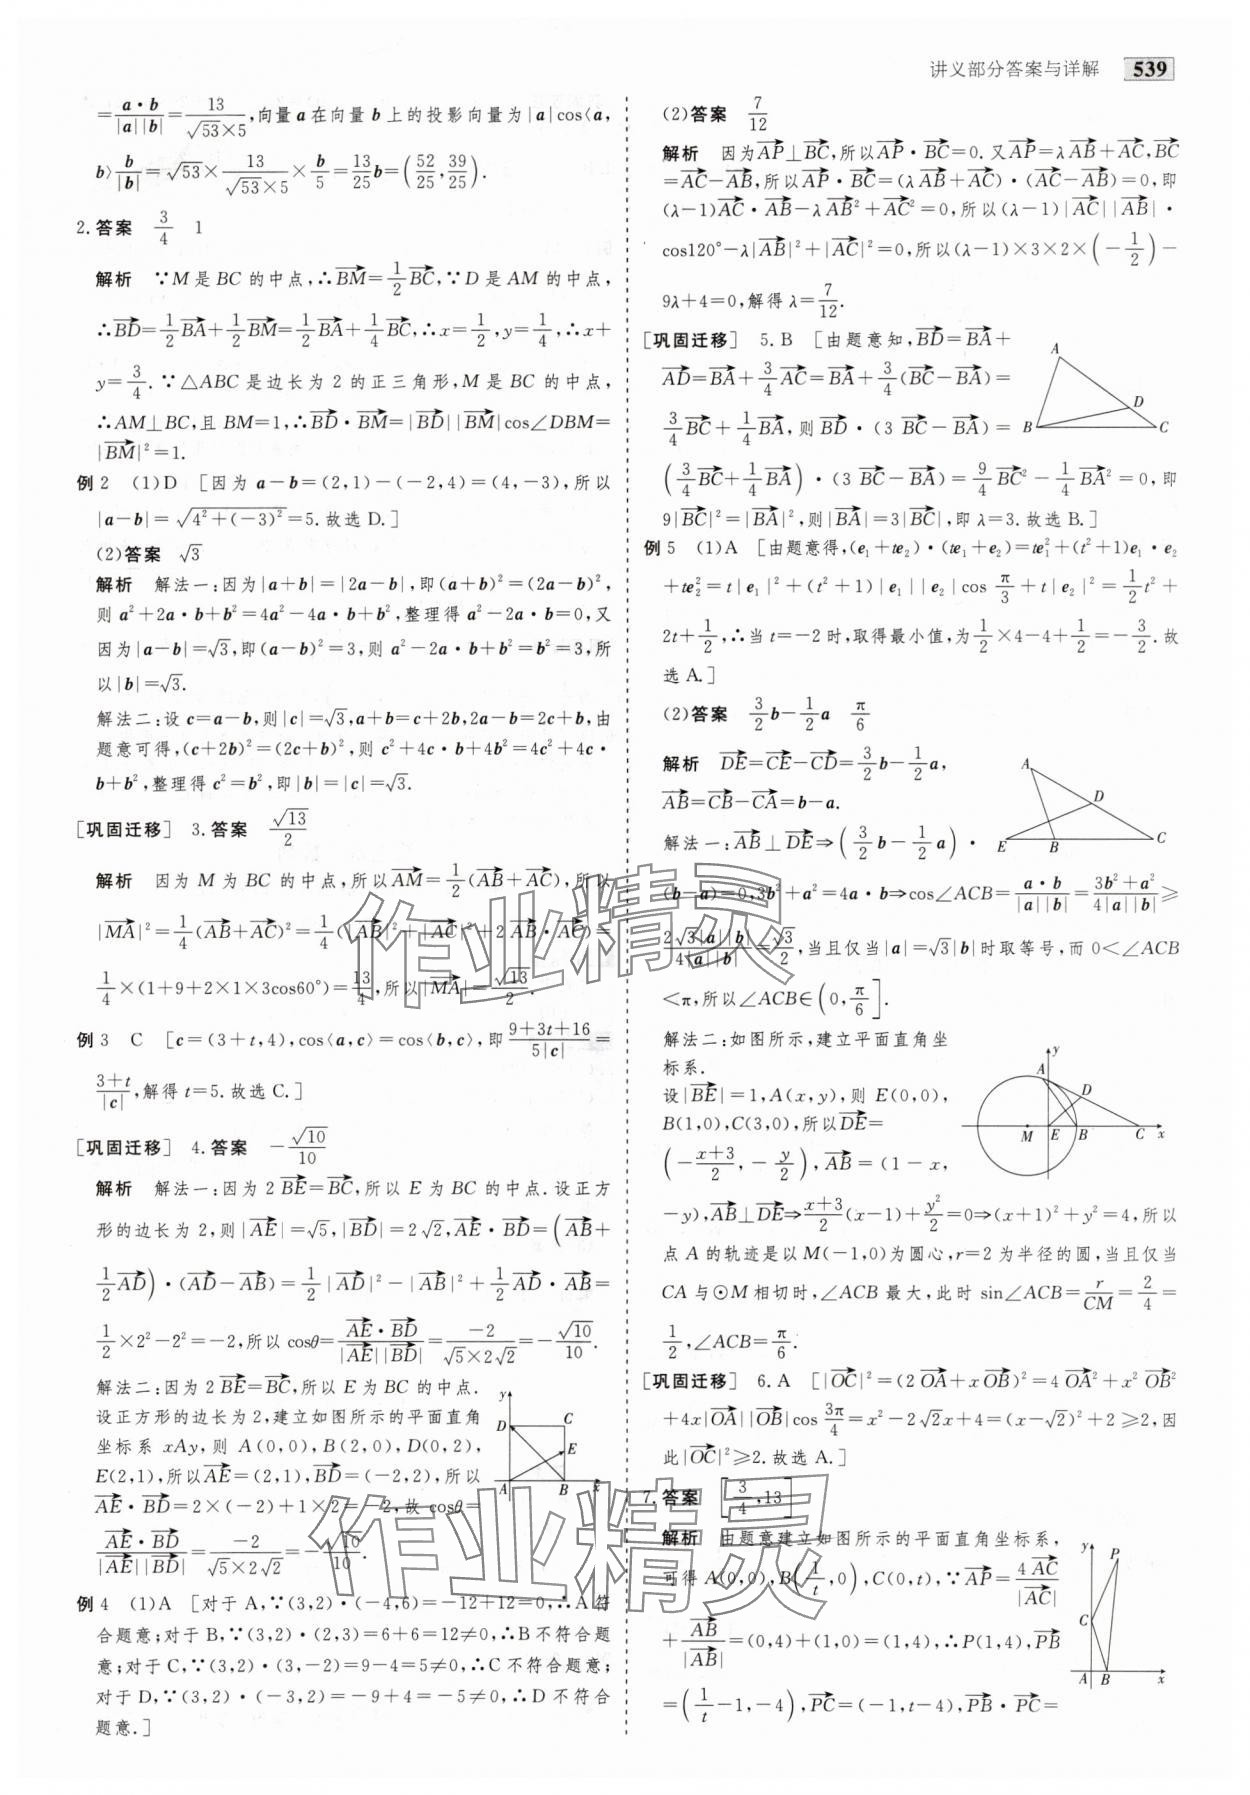 讲义部分答案与详解 539
=a·b/(|a||b|)=13/(√53×5),向量a在向量b上的投影向量为|a|cos⟨a,
b⟩b/|b|=√53×13/(√53×5)×b/5=13/25b=(52/25,39/25).
2.答案 3/4 1
解析 ∵M是BC的中点,∴→BM=1/2→BC,∵D是AM的中点,
∴→BD=1/2→BA+1/2→BM=1/2→BA+1/4→BC,∴x=1/2,y=1/4,∴x+
y=3/4.∵△ABC是边长为2的正三角形,M是BC的中点,
∴AM⊥BC,且BM=1,∴→BD·→BM=|→BD||→BM|cos∠DBM=
|→BM|²=1.
例2 (1)D [因为a-b=(2,1)-(-2,4)=(4,-3),所以
|a-b|=√(4²+(-3)²)=5.故选D.]
(2)答案 √3
解析 解法一:因为|a+b|=|2a-b|,即(a+b)²=(2a-b)²,
则a²+2a·b+b²=4a²-4a·b+b²,整理得a²-2a·b=0,又
因为|a-b|=√3,即(a-b)²=3,则a²-2a·b+b²=b²=3,所
以|b|=√3.
解法二:设c=a-b,则|c|=√3,a+b=c+2b,2a-b=2c+b,由
题意可得,(c+2b)²=(2c+b)²,则c²+4c·b+4b²=4c²+4c·
b+b²,整理得c²=b²,即|b|=|c|=√3.
[巩固迁移] 3.答案 √13/2
解析 因为M为BC的中点,所以→AM=1/2(→AB+→AC),所以
|→MA|²=1/4(→AB+→AC)²=1/4(|→AB|²+|→AC|²+2→AB·→AC)=
1/4×(1+9+2×1×3cos60°)=13/4,所以|→MA|=√13/2.
例3 C [c=(3+t,4),cos⟨a,c⟩=cos⟨b,c⟩,即(9+3t+16)/(5|c|)=
(3+t)/|c|,解得t=5.故选C.]
[巩固迁移] 4.答案 -√10/10
解析 解法一:因为2→BE=→BC,所以E为BC的中点.设正方
形的边长为2,则|→AE|=√5,|→BD|=2√2,→AE·→BD=(→AB+
1/2→AD)·(→AD-→AB)=1/2|→AD|²-|→AB|²+1/2→AD·→AB=
1/2×2²-2²=-2,所以cosθ=→AE·→BD/(|→AE||→BD|)=-2/(√5×2√2)=-√10/10.
解法二:因为2→BE=→BC,所以E为BC的中点.
设正方形的边长为2,建立如图所示的平面直角
坐标系xAy,则A(0,0),B(2,0),D(0,2),
E(2,1),所以→AE=(2,1),→BD=(-2,2),所以
→AE·→BD=2×(-2)+1×2=-2,故cosθ=
→AE·→BD/(|→AE||→BD|)=-2/(√5×2√2)=-√10/10.
y
D C
E
A B x
例4 (1)A [对于A,∵(3,2)·(-4,6)=-12+12=0,∴A符
合题意;对于B,∵(3,2)·(2,3)=6+6=12≠0,∴B不符合题
意;对于C,∵(3,2)·(3,-2)=9-4=5≠0,∴C不符合题意;
对于D,∵(3,2)·(-3,2)=-9+4=-5≠0,∴D不符合
题意.]
(2)答案 7/12
解析 因为→AP⊥→BC,所以→AP·→BC=0.又→AP=λ→AB+→AC,→BC
=→AC-→AB,所以→AP·→BC=(λ→AB+→AC)·(→AC-→AB)=0,即
(λ-1)→AC·→AB-λ→AB²+→AC²=0,所以(λ-1)|→AC||→AB|·
cos120°-λ|→AB|²+|→AC|²=0,所以(λ-1)×3×2×(-1/2)-
9λ+4=0,解得λ=7/12.
[巩固迁移] 5.B [由题意知,→BD=→BA+
→AD=→BA+3/4→AC=→BA+3/4(→BC-→BA)=
3/4→BC+1/4→BA,则→BD·(3→BC-→BA)=
(3/4→BC+1/4→BA)·(3→BC-→BA)=9/4→BC²-1/4→BA²=0,即
9|→BC|²=|→BA|²,则|→BA|=3|→BC|,即λ=3.故选B.]
A
D
B C
例5 (1)A [由题意得,(e₁+te₂)·(te₁+e₂)=te₁²+(t²+1)e₁·e₂
+te₂²=t|e₁|²+(t²+1)|e₁||e₂|cosπ/3+t|e₂|²=1/2t²+
2t+1/2,∴当t=-2时,取得最小值,为1/2×4-4+1/2=-3/2.故
选A.]
(2)答案 3/2b-1/2a π/6
解析 →DE=→CE-→CD=3/2b-1/2a,
→AB=→CB-→CA=b-a.
解法一:→AB⊥→DE⇒(3/2b-1/2a)·
(b-a)=0,3b²+a²=4a·b⇒cos∠ACB=a·b/(|a||b|)=(3b²+a²)/(4|a||b|)≥
2√3|a||b|/(4|a||b|)=√3/2,当且仅当|a|=√3|b|时取等号,而0<∠ACB
<π,所以∠ACB∈(0,π/6].
A
D
E B C
解法二:如图所示,建立平面直角坐
标系.
设|→BE|=1,A(x,y),则E(0,0),
B(1,0),C(3,0),所以→DE=
(-(x+3)/2,-y/2),→AB=(1-x,
-y),→AB⊥→DE⇒(x+3)/2(x-1)+y²/2=0⇒(x+1)²+y²=4,所以
点A的轨迹是以M(-1,0)为圆心,r=2为半径的圆,当且仅当
CA与⊙M相切时,∠ACB最大,此时sin∠ACB=r/CM=2/4=
1/2,∠ACB=π/6.
y
A
D
M E B C x
[巩固迁移] 6.A [|→OC|²=(2→OA+x→OB)²=4→OA²+x²→OB²
+4x|→OA||→OB|cos3π/4=x²-2√2x+4=(x-√2)²+2≥2,因
此|→OC|²≥2.故选A.]
7.答案 [3/4,13]
解析 由题意建立如图所示的平面直角坐标系,
可得A(0,0),B(1/t,0),C(0,t),∵→AP=4→AC/|→AC|
+→AB/|→AB|=(0,4)+(1,0)=(1,4),∴P(1,4),→PB
=(1/t-1,-4),→PC=(-1,t-4),→PB·→PC=
y
P
C
A B x
作业精灵
作业精灵